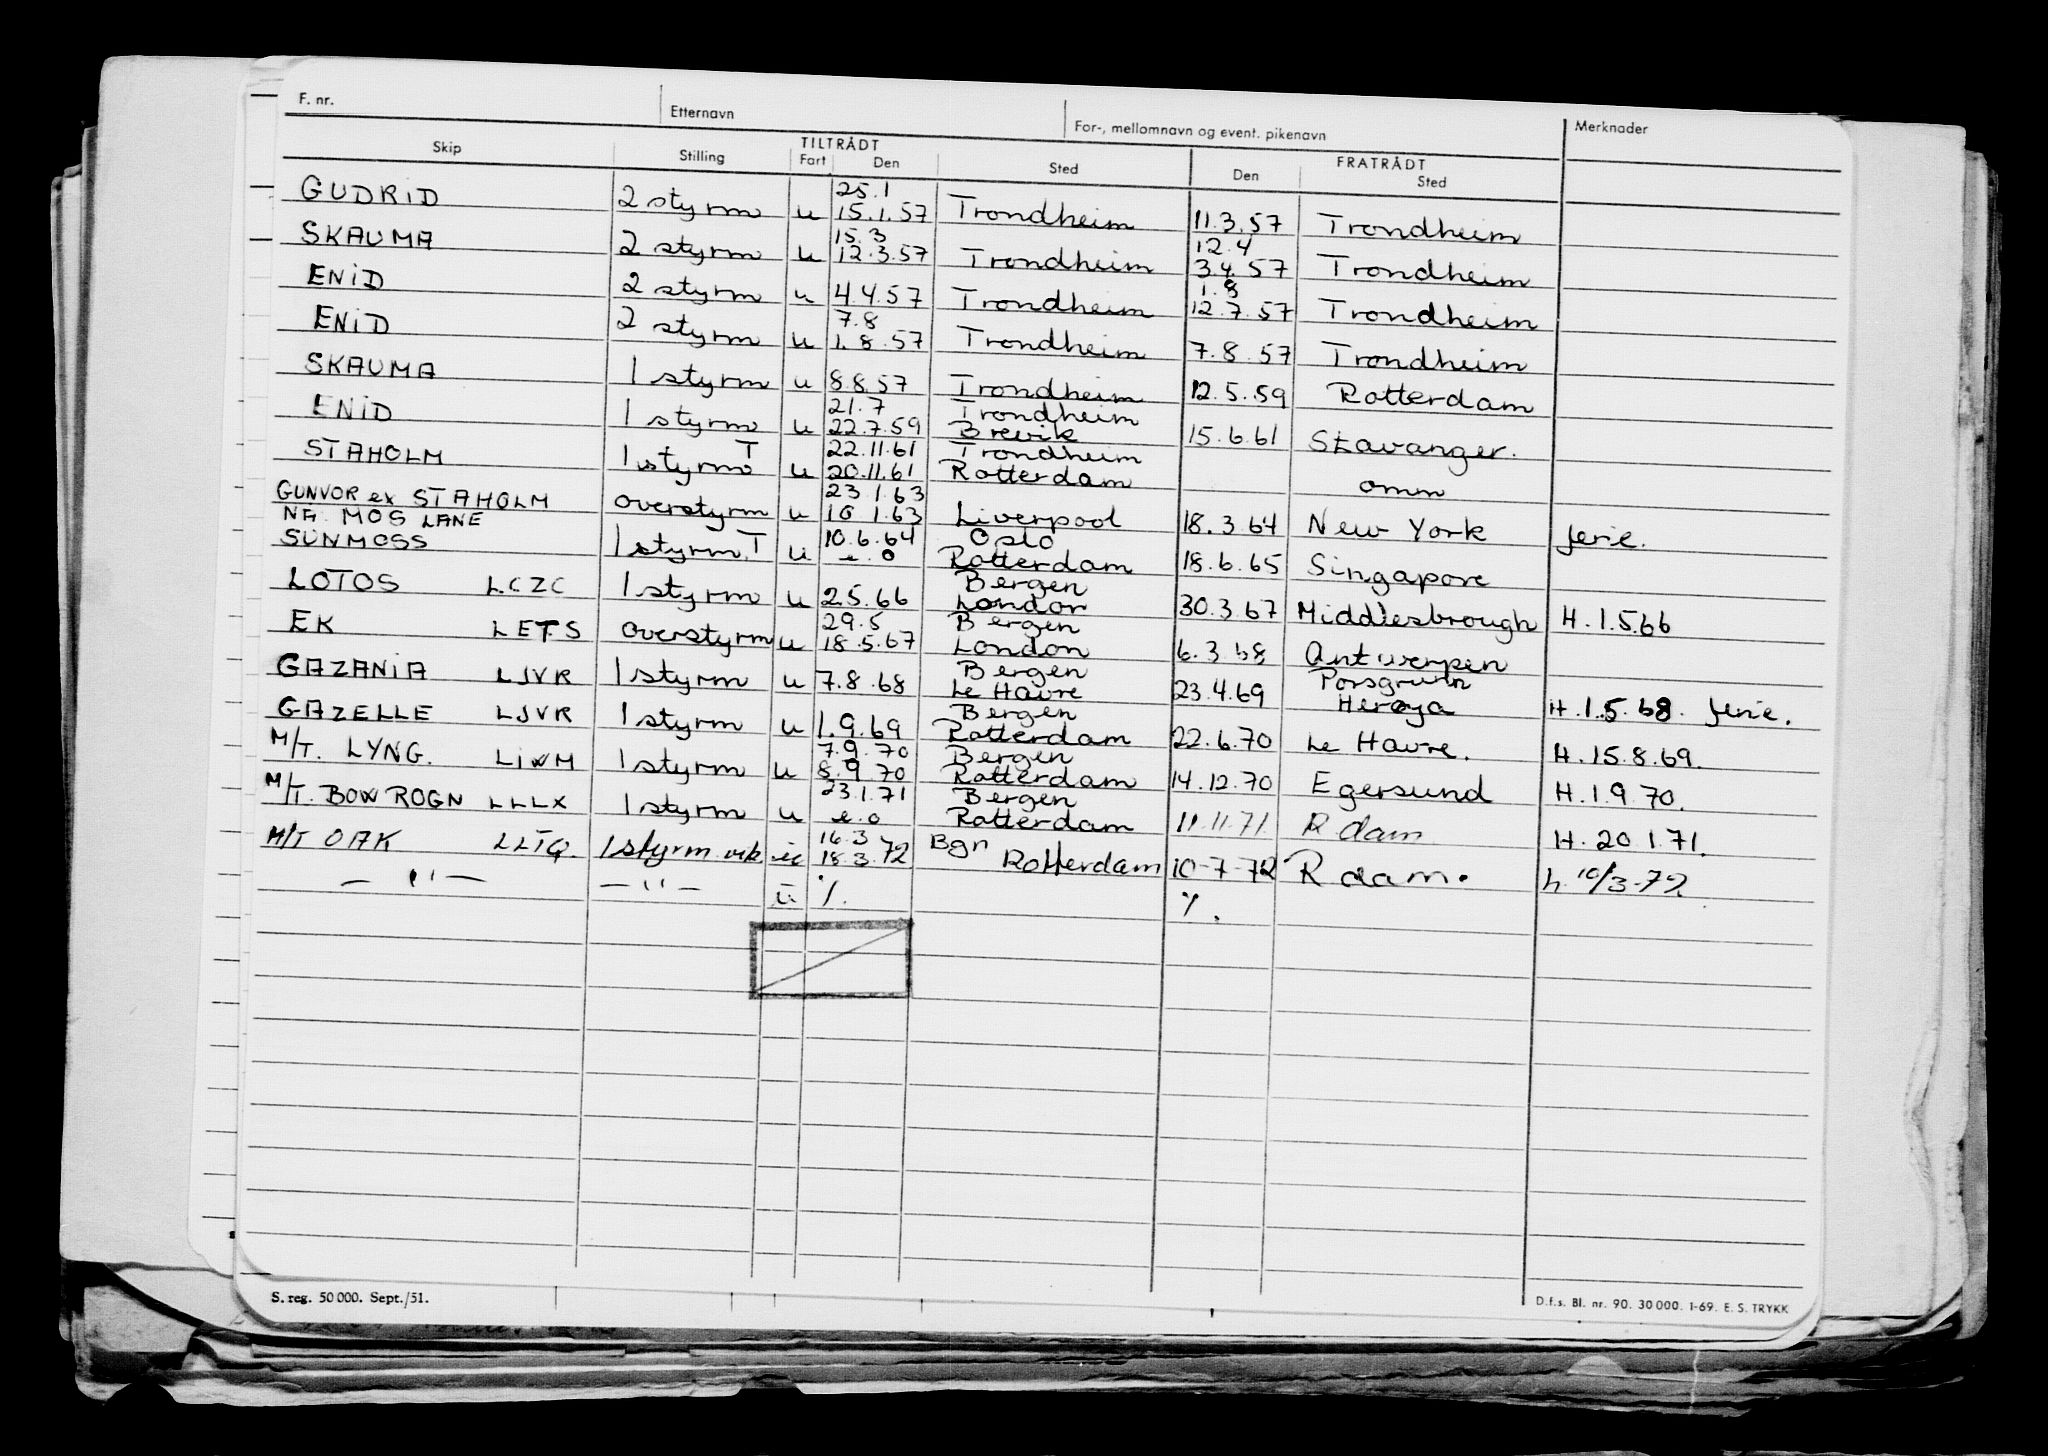 F. nr. Etternavn For-, mellomnavn og event. pikenavn Merknader
Skip Stilling TILTRÅDT Fart Den Sted FRATRÅDT Den Sted
GUDRID 2 styrm u 25.1 15.1.57 Trondheim 11.3.57 Trondheim
SKAUMA 2 styrm u 15.3 12.3.57 Trondheim 12.4 3.4.57 Trondheim
ENID 2 styrm u 4.4.57 Trondheim 1.8 12.7.57 Trondheim
ENID 2 styrm u 7.8 1.8.57 Trondheim 7.8.57 Trondheim
SKAUMA 1 styrm u 8.8.57 Trondheim 12.5.59 Rotterdam
ENID 1 styrm u 21.7 22.7.59 Trondheim Brevik 15.6.61 Stavanger.
STAHOLM 1 styrm T u 22.11.61 20.11.61 Trondheim Rotterdam omm
GUNVOR ex STAHOLM overstyrm u 23.1.63 10.1.63 Liverpool 18.3.64 New York ferie.
NÅ MOS LANE
SUNMOSS 1 styrm. T u 10.6.64 e.o Oslo Rotterdam 18.6.65 Singapore
LOTOS LCZC 1 styrm u 2.5.66 Bergen London 30.3.67 Middlesbrough H.1.5.66
EK LETS overstyrm u 29.5 18.5.67 Bergen London 6.3.68 Antwerpen
GAZANIA LJVR 1 styrm u 7.8.68 Bergen Le Havre 23.4.69 Porsgrunn Herøya H.1.5.68 ferie.
GAZELLE LJVR 1 styrm u 1.9.69 Bergen Rotterdam 22.6.70 Le Havre. H.15.8.69.
M/T. LYNG. LIWM 1 styrm u 7.9.70 8.9.70 Bergen Rotterdam 14.12.70 Egersund H.1.9.70.
M/T. BOW ROGN LLLX 1 styrm u 23.1.71 e.o Bergen Rotterdam 11.11.71 R dam H.20.1.71.
M/T OAK LLTQ. 1 styrm vik u 16.3 18.3.72 Bgn Rotterdam 10-7-72 R dam. h. 10/3-72
— " — — " — u %. %.
S. reg. 50 000. Sept./51. D.f.s. Bl. nr. 90. 30 000. 1-69. E. S. TRYKK